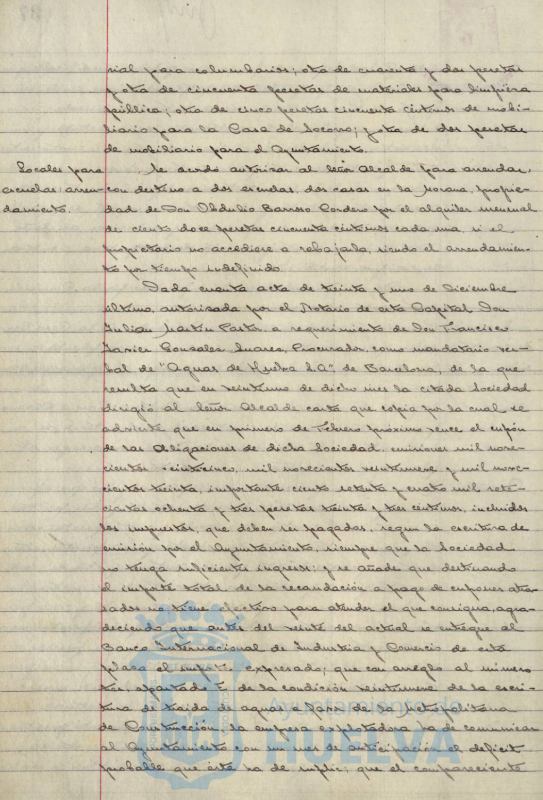 rial para columbarios; otra de cuarenta y dos pesetas
y otra de cincuenta pesetas de materiales para limpieza
pública; otra de cinco pesetas cincuenta céntimos de mobi-
liario para la Casa de Socorro; y otra de dos pesetas
de mobiliario para el Ayuntamiento.
Locales para
escuelas: arren-
damiento.
Se acordó autorizar al Señor Alcalde para arrendar,
con destino a dos escuelas, dos casas en la Morana, propie-
dad de Don Obdulio Barroso Cordero por el alquiler mensual
de ciento doce pesetas cincuenta céntimos cada una, si el
propietario no accediere a rebajarla, siendo el arrendamien-
to por tiempo indefinido.
Dada cuenta acta de treinta y uno de Diciembre
último, autorizada por el Notario de esta Capital Don
Julian Martin Pastor, a requerimiento de Don Francisco
Javier Gonzalez Suarez, Procurador, como mandatario ver-
bal de "Aguas de Huelva S.A." de Barcelona, de la que
resulta que en veintiuno de dicho mes la citada Sociedad
dirigió al Señor Alcalde carta que copia por la cual se
advierte que en primero de Febrero próximo vence el cupón
de las Obligaciones de dicha Sociedad, emisiones mil nove-
cientos veinticinco, mil novecientos veintinueve y mil nove-
cientos treinta, importante ciento setenta y cuatro mil sete-
cientas ochenta y tres pesetas treinta y tres céntimos, incluidos
los impuestos, que deben ser pagadas, segun la escritura de
emisión por el Ayuntamiento, siempre que la Sociedad
no tenga suficientes ingresos; y se añade que destinando
el importe total de la recaudación a pago de cupones atra-
sados no tiene efectivo para atender el que consigna, agra-
deciendo que antes del veinte del actual se entregue al
Banco Internacional de Industria y Comercio de esta
plaza el expresado; que con arreglo al número
tres, apartado de la condición veintinueve de la escri-
tura de traida de aguas a favor de la Metropolitana
de Construcción, la empresa explotadora ha de comunicar
al Ayuntamiento con un mes de anticipación el déficit
probable que éste ha de suplir; que el compareciente
Ayuntamiento de
HUELVA